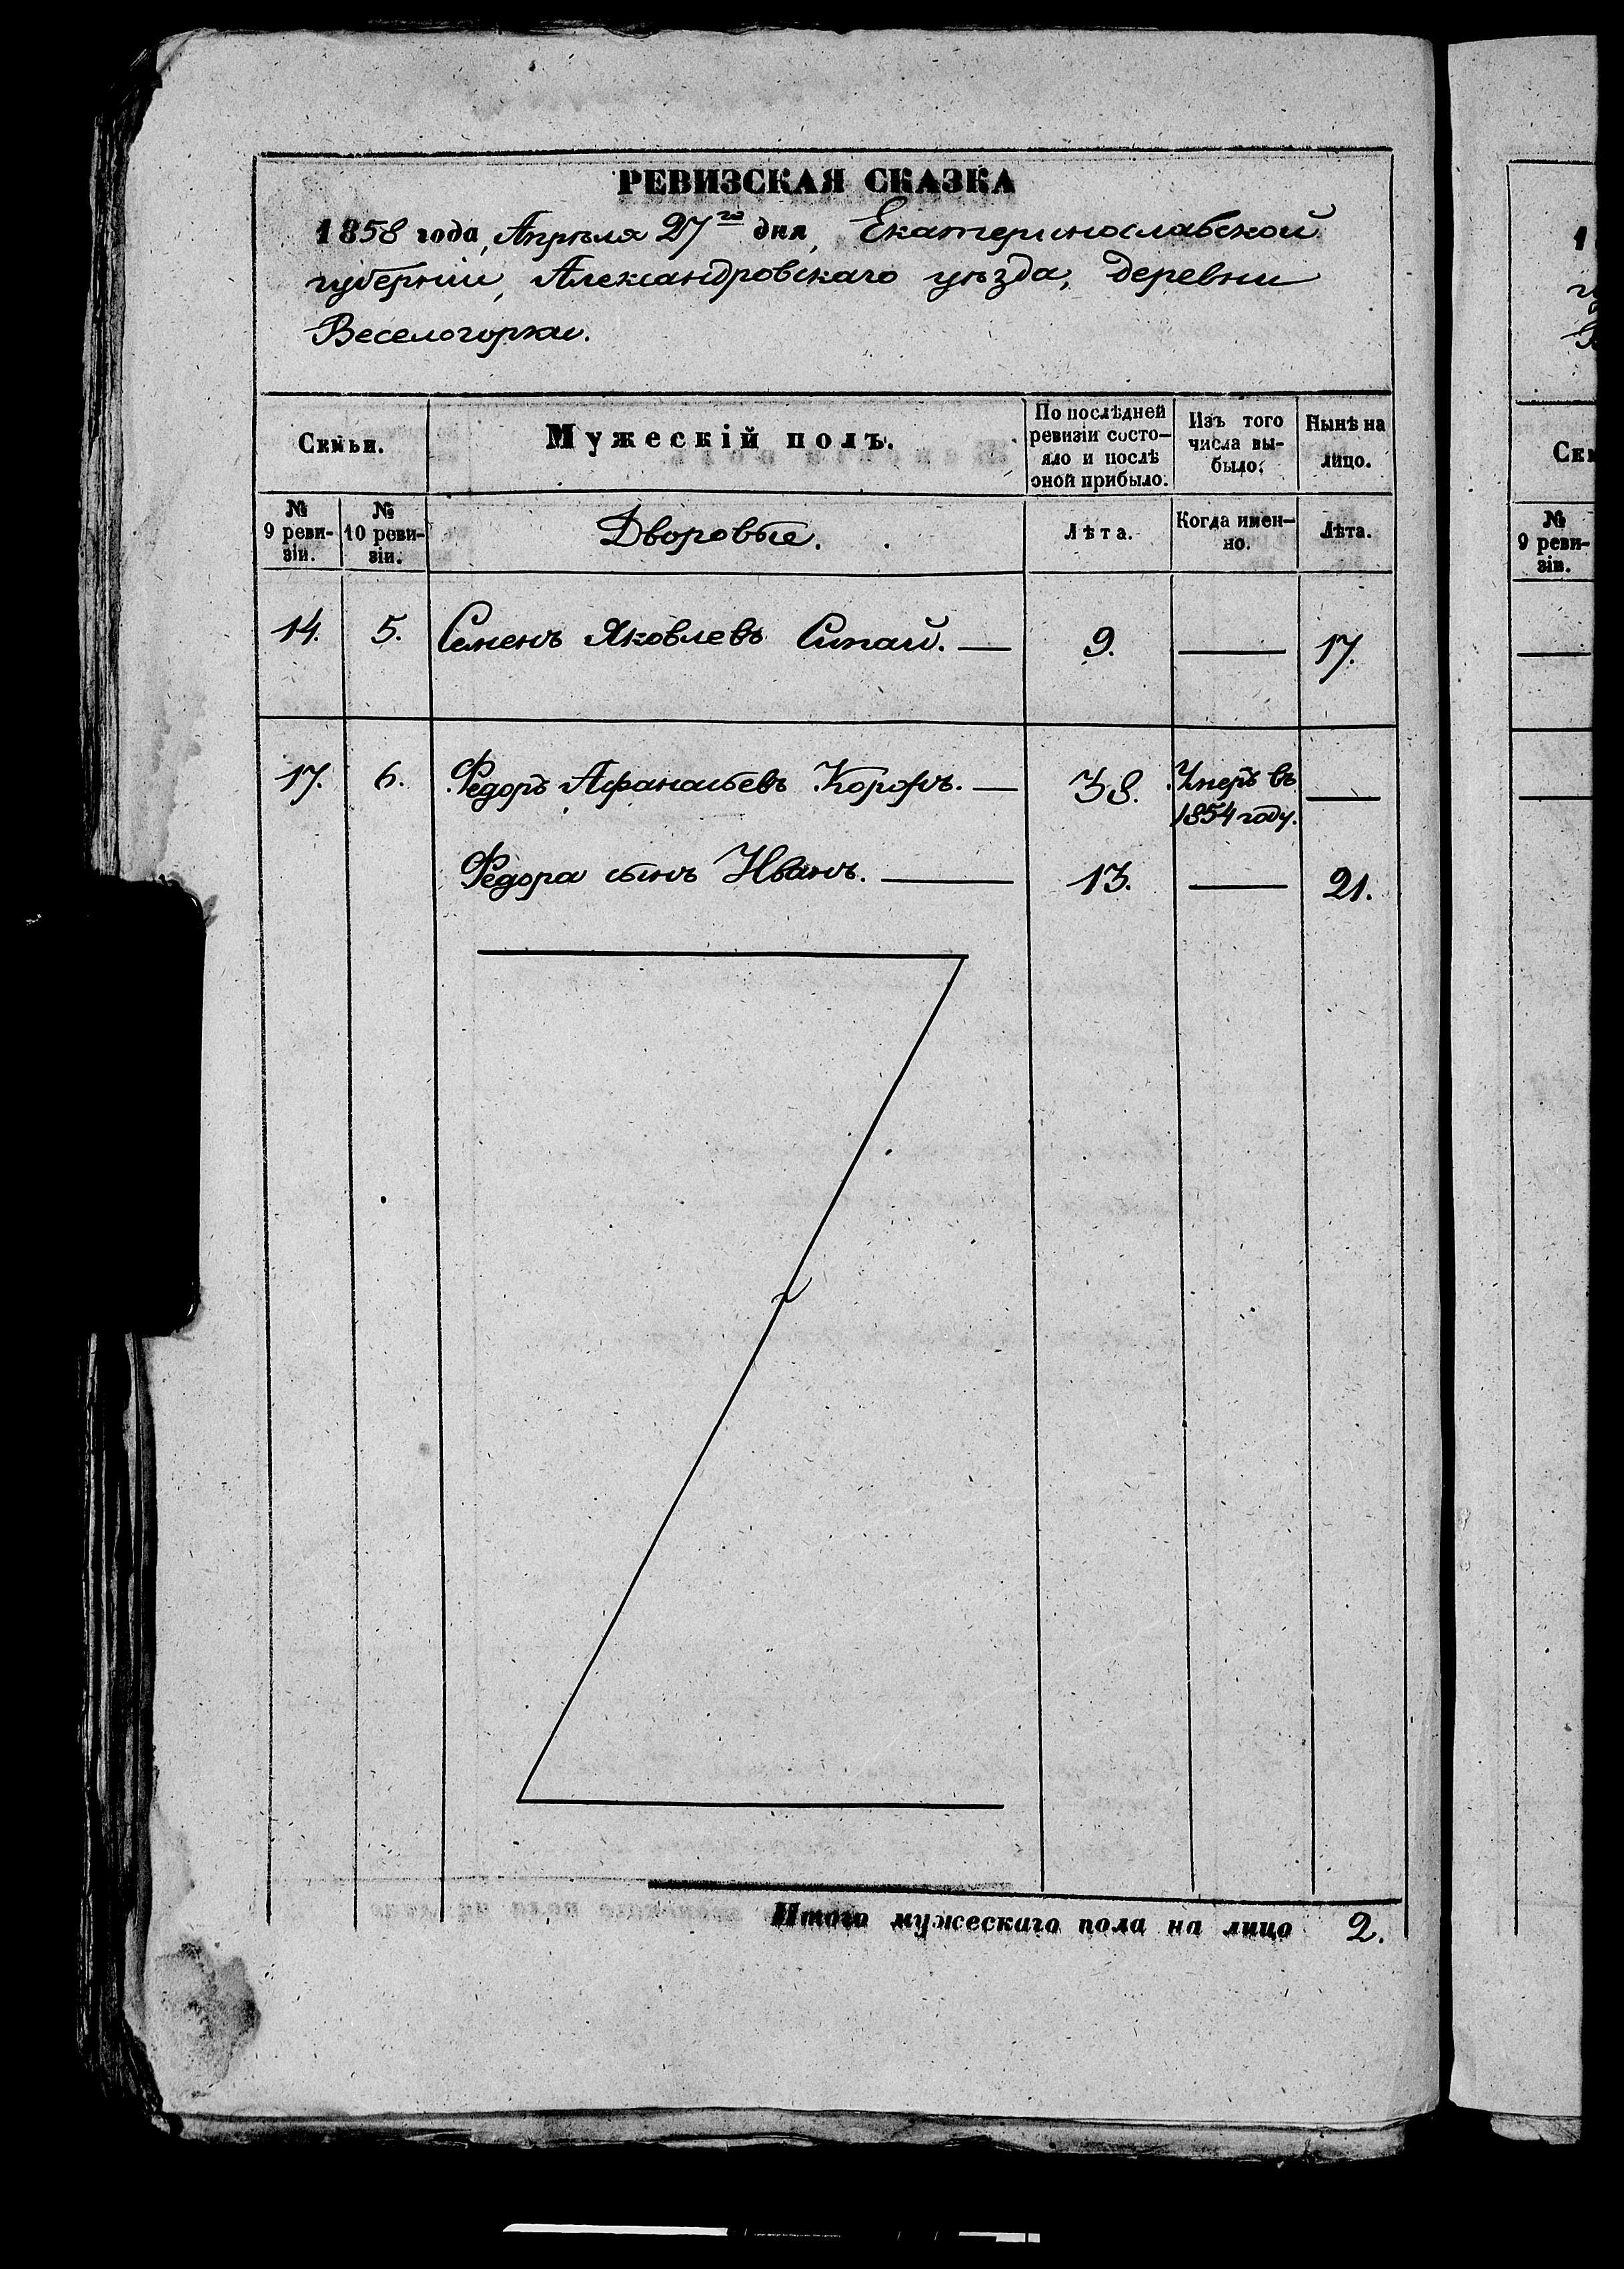 РЕВИЗСКАЯ СКАЗКА
1858 года, Апрѣля 27го дня, Екатеринославской
губерніи, Александровскаго уѣзда, деревни
Веселогорки.
Семьи.
Мужескій полъ.
По послѣдней
ревизіи состо-
яло и послѣ
оной прибыло.
Изъ того
числа вы-
было.
Нынѣ на
лицо.
№
9 реви-
зіи.
№
10 реви-
зіи.
Дворовые.
Лѣта.
Когда имен-
но.
Лѣта.
14. 5. Семенъ Яковлевъ Сипай. — 9. — 17.
17. 6. Федоръ Афанасьевъ — 38. Умеръ въ —
1854 году.
Федора сынъ Иванъ. — 13. — 21.
Итого мужескаго пола на лицо 2.
1
Сем
№
9 реви-
зіи.